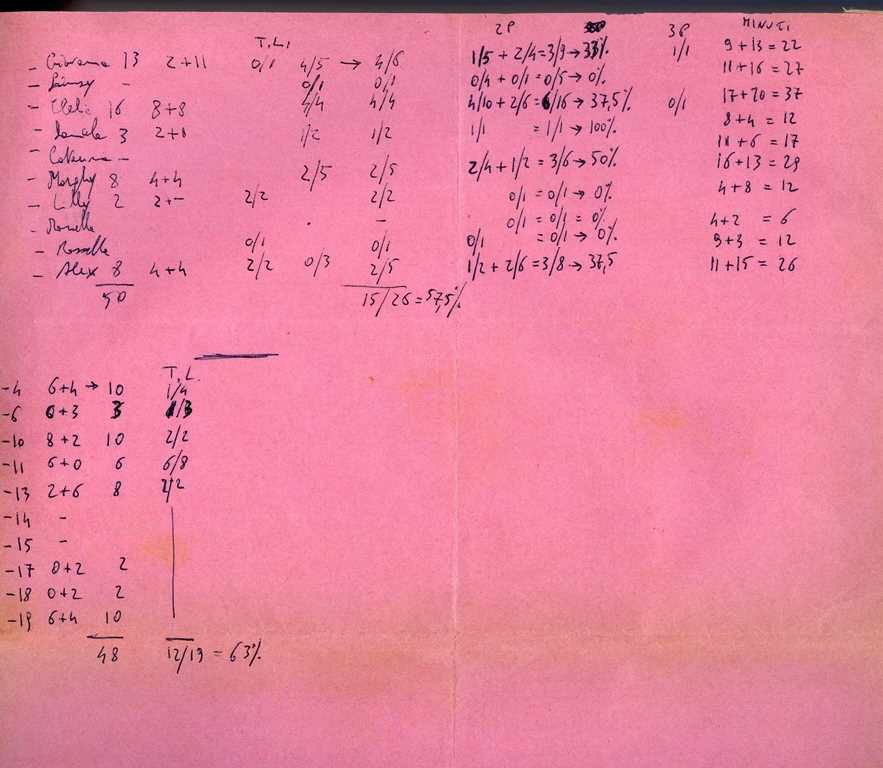 T.L. 2P 3P MINUTI
- Giovanna 13 2+11 0/1 4/5 → 4/6 1/5 + 2/4 = 3/9 → 33% 1/1 9+13 = 22
- - 0/1 0/1 0/4 + 0/1 = 0/5 → 0% 11+16 = 27
- Clelia 16 8+8 4/4 4/4 4/10 + 2/6 = 6/16 → 37,5% 0/1 17+20 = 37
- 3 2+1 1/2 1/2 1/1 = 1/1 → 100% 8+4 = 12
- Caterina - 11+6 = 17
- Morghy 8 4+4 2/5 2/5 2/4 + 1/2 = 3/6 → 50% 16+13 = 29
- Lilly 2 2+- 2/2 2/2 0/1 = 0/1 → 0% 4+8 = 12
- - 0/1 = 0/1 = 0% 4+2 = 6
- Rossella 0/1 0/1 0/1 = 0/1 → 0% 9+3 = 12
- Alex 8 4+4 2/2 0/3 2/5 1/2 + 2/6 = 3/8 → 37,5 11+15 = 26
50 15/26 = 57,5%
T.L.
-4 6+4 → 10 1/4
-6 0+3 3 1/3
-10 8+2 10 2/2
-11 6+0 6 6/8
-13 2+6 8 2/2
-14 -
-15 -
-17 0+2 2
-18 0+2 2
-19 6+4 10
48 12/19 = 63%